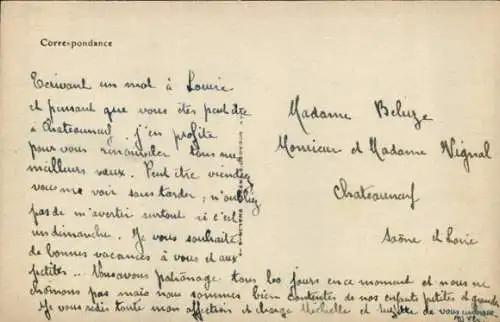 Correspondance
Ecrivant un mot à Louise
et pensant que vous êtes peut être
à Chateauneuf j'en profite
pour vous renouveler tous mes
meilleurs vœux. Peut être viendrez
vous me voir sans tarder, n'oubliez
pas de m'avertir surtout si c'est
un dimanche. Je vous souhaite
de bonnes vacances à vous et aux
petites... Nous avons patronage tous les jours en ce moment et nous ne
chômons pas mais nous sommes bien contentes de nos enfants petites et grandes
Je vous redis toute mon affection et charge Michelle et de vous embrasser
Madame Beluze
Monsieur et Madame Vignal
Chateauneuf
Saône et Loire